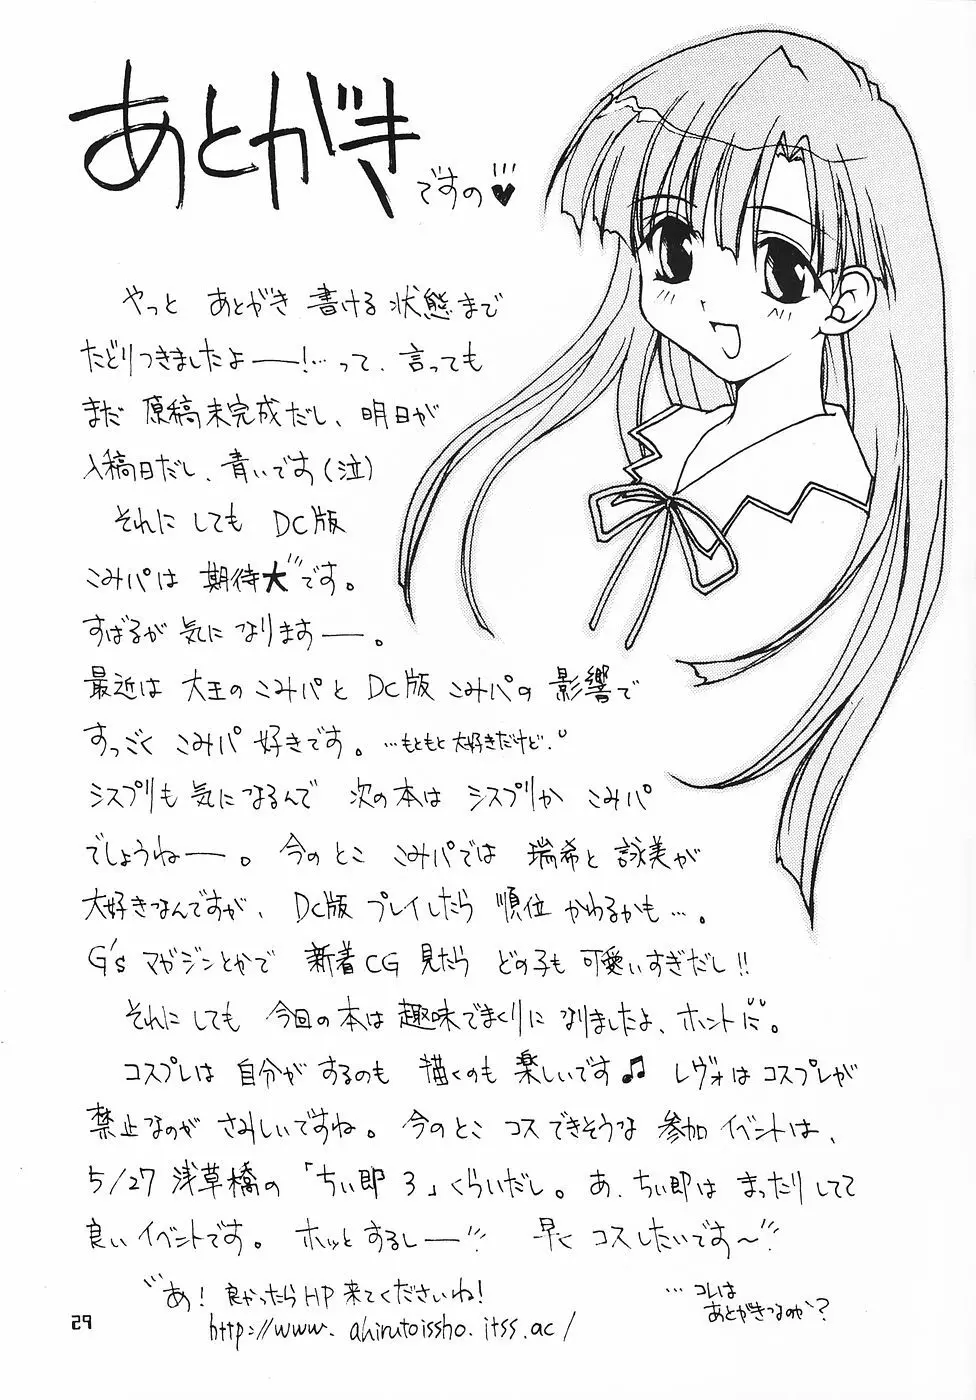 あとがき
ですの♥
やっと あとがき 書ける 状態まで
たどりつきましたよ――!…って、言っても
まだ 原稿未完成だし、明日が
入稿日だし、青いです(泣)
それにしても DC版
こみパは 期待大です。
すばるが 気に なります――。
最近は 大王の こみパと DC版 こみパの 影響で
すっごく こみパ 好きです。…もともと大好きだけど。
シスプリも 気になるんで 次の本は シスプリか こみパ
でしょうね――。今のとこ こみパでは 瑞希と 詠美が
大好きなんですが、DC版 プレイしたら 順位 かわるかも…。
G'sマガジンとかで 新着CG 見たら どの子も 可愛いすぎだし!!
それにしても 今回の本は 趣味でまくりに なりましたよ、ホントに。
コスプレは 自分が するのも 描くのも 楽しいです♫ レヴォは コスプレが
禁止なのが さみしいですね。今のとこ コス できそうな 参加 イベントは、
5/27 浅草橋の 「ちぃ即 3」くらいだし。あ、ちぃ即は まったりしてて
良い イベントです。ホッと するし――!! 早く コスしたいです〜!!
あ! 良かったら HP 来てくださいね!
http://www.ahirutoissho.itss.ac/
…コレは
あとがきなのか?
29